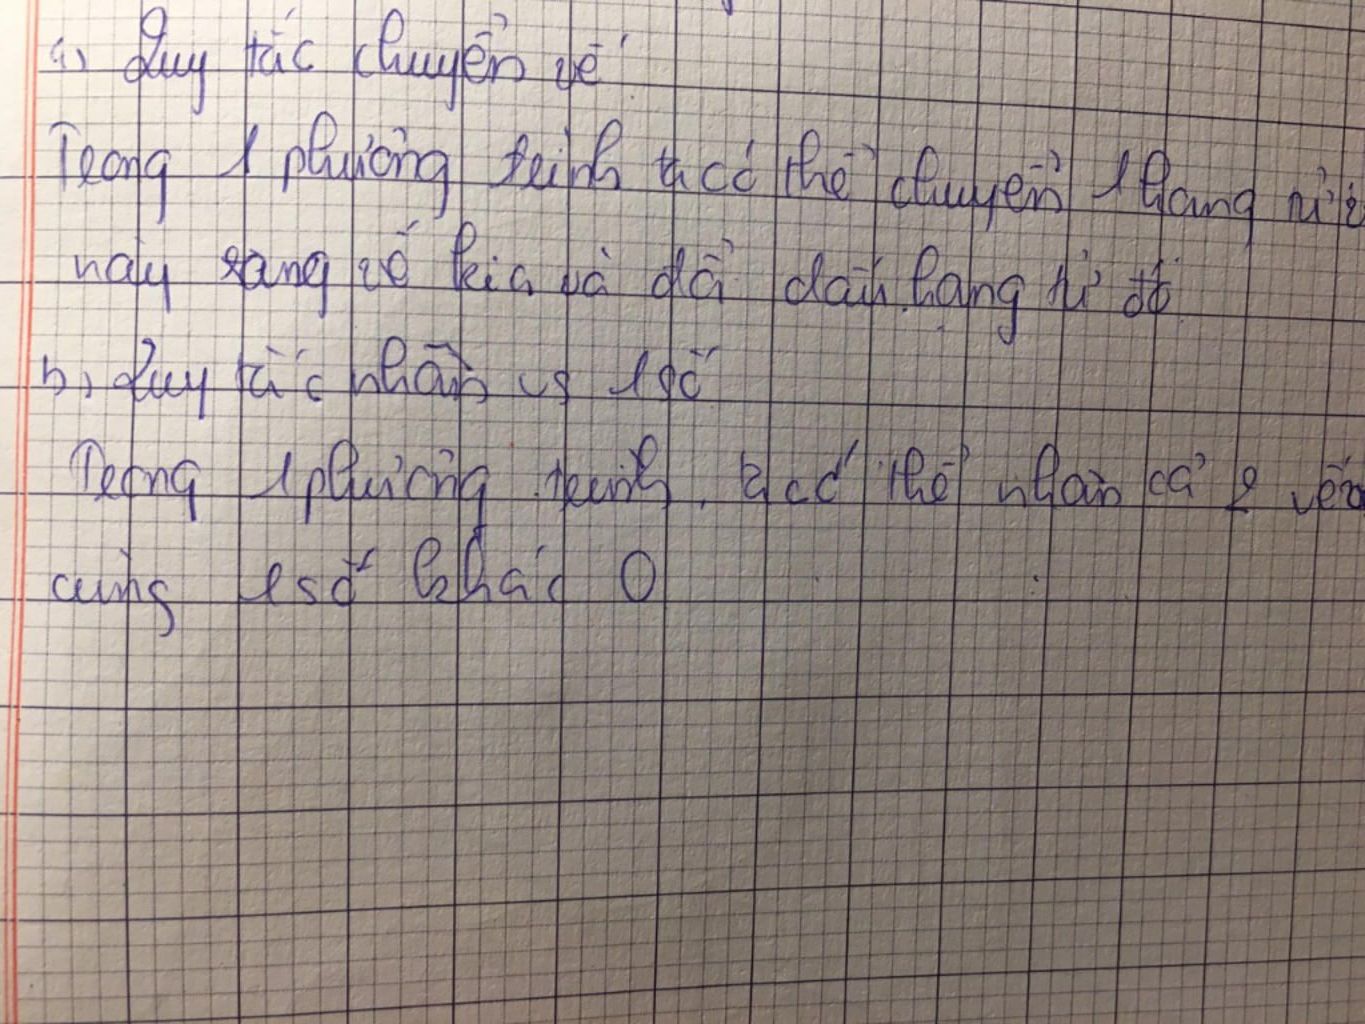 a, Quy tắc chuyển vế
Trong 1 phương trình ta có thể chuyển 1 hạng tử từ
này sang vế kia và đổi dấu hạng tử đó
b, Quy tắc nhân vs 1 số
Trong 1 phương trình, ta có thể nhân cả 2 vế
cùng 1 số khác 0